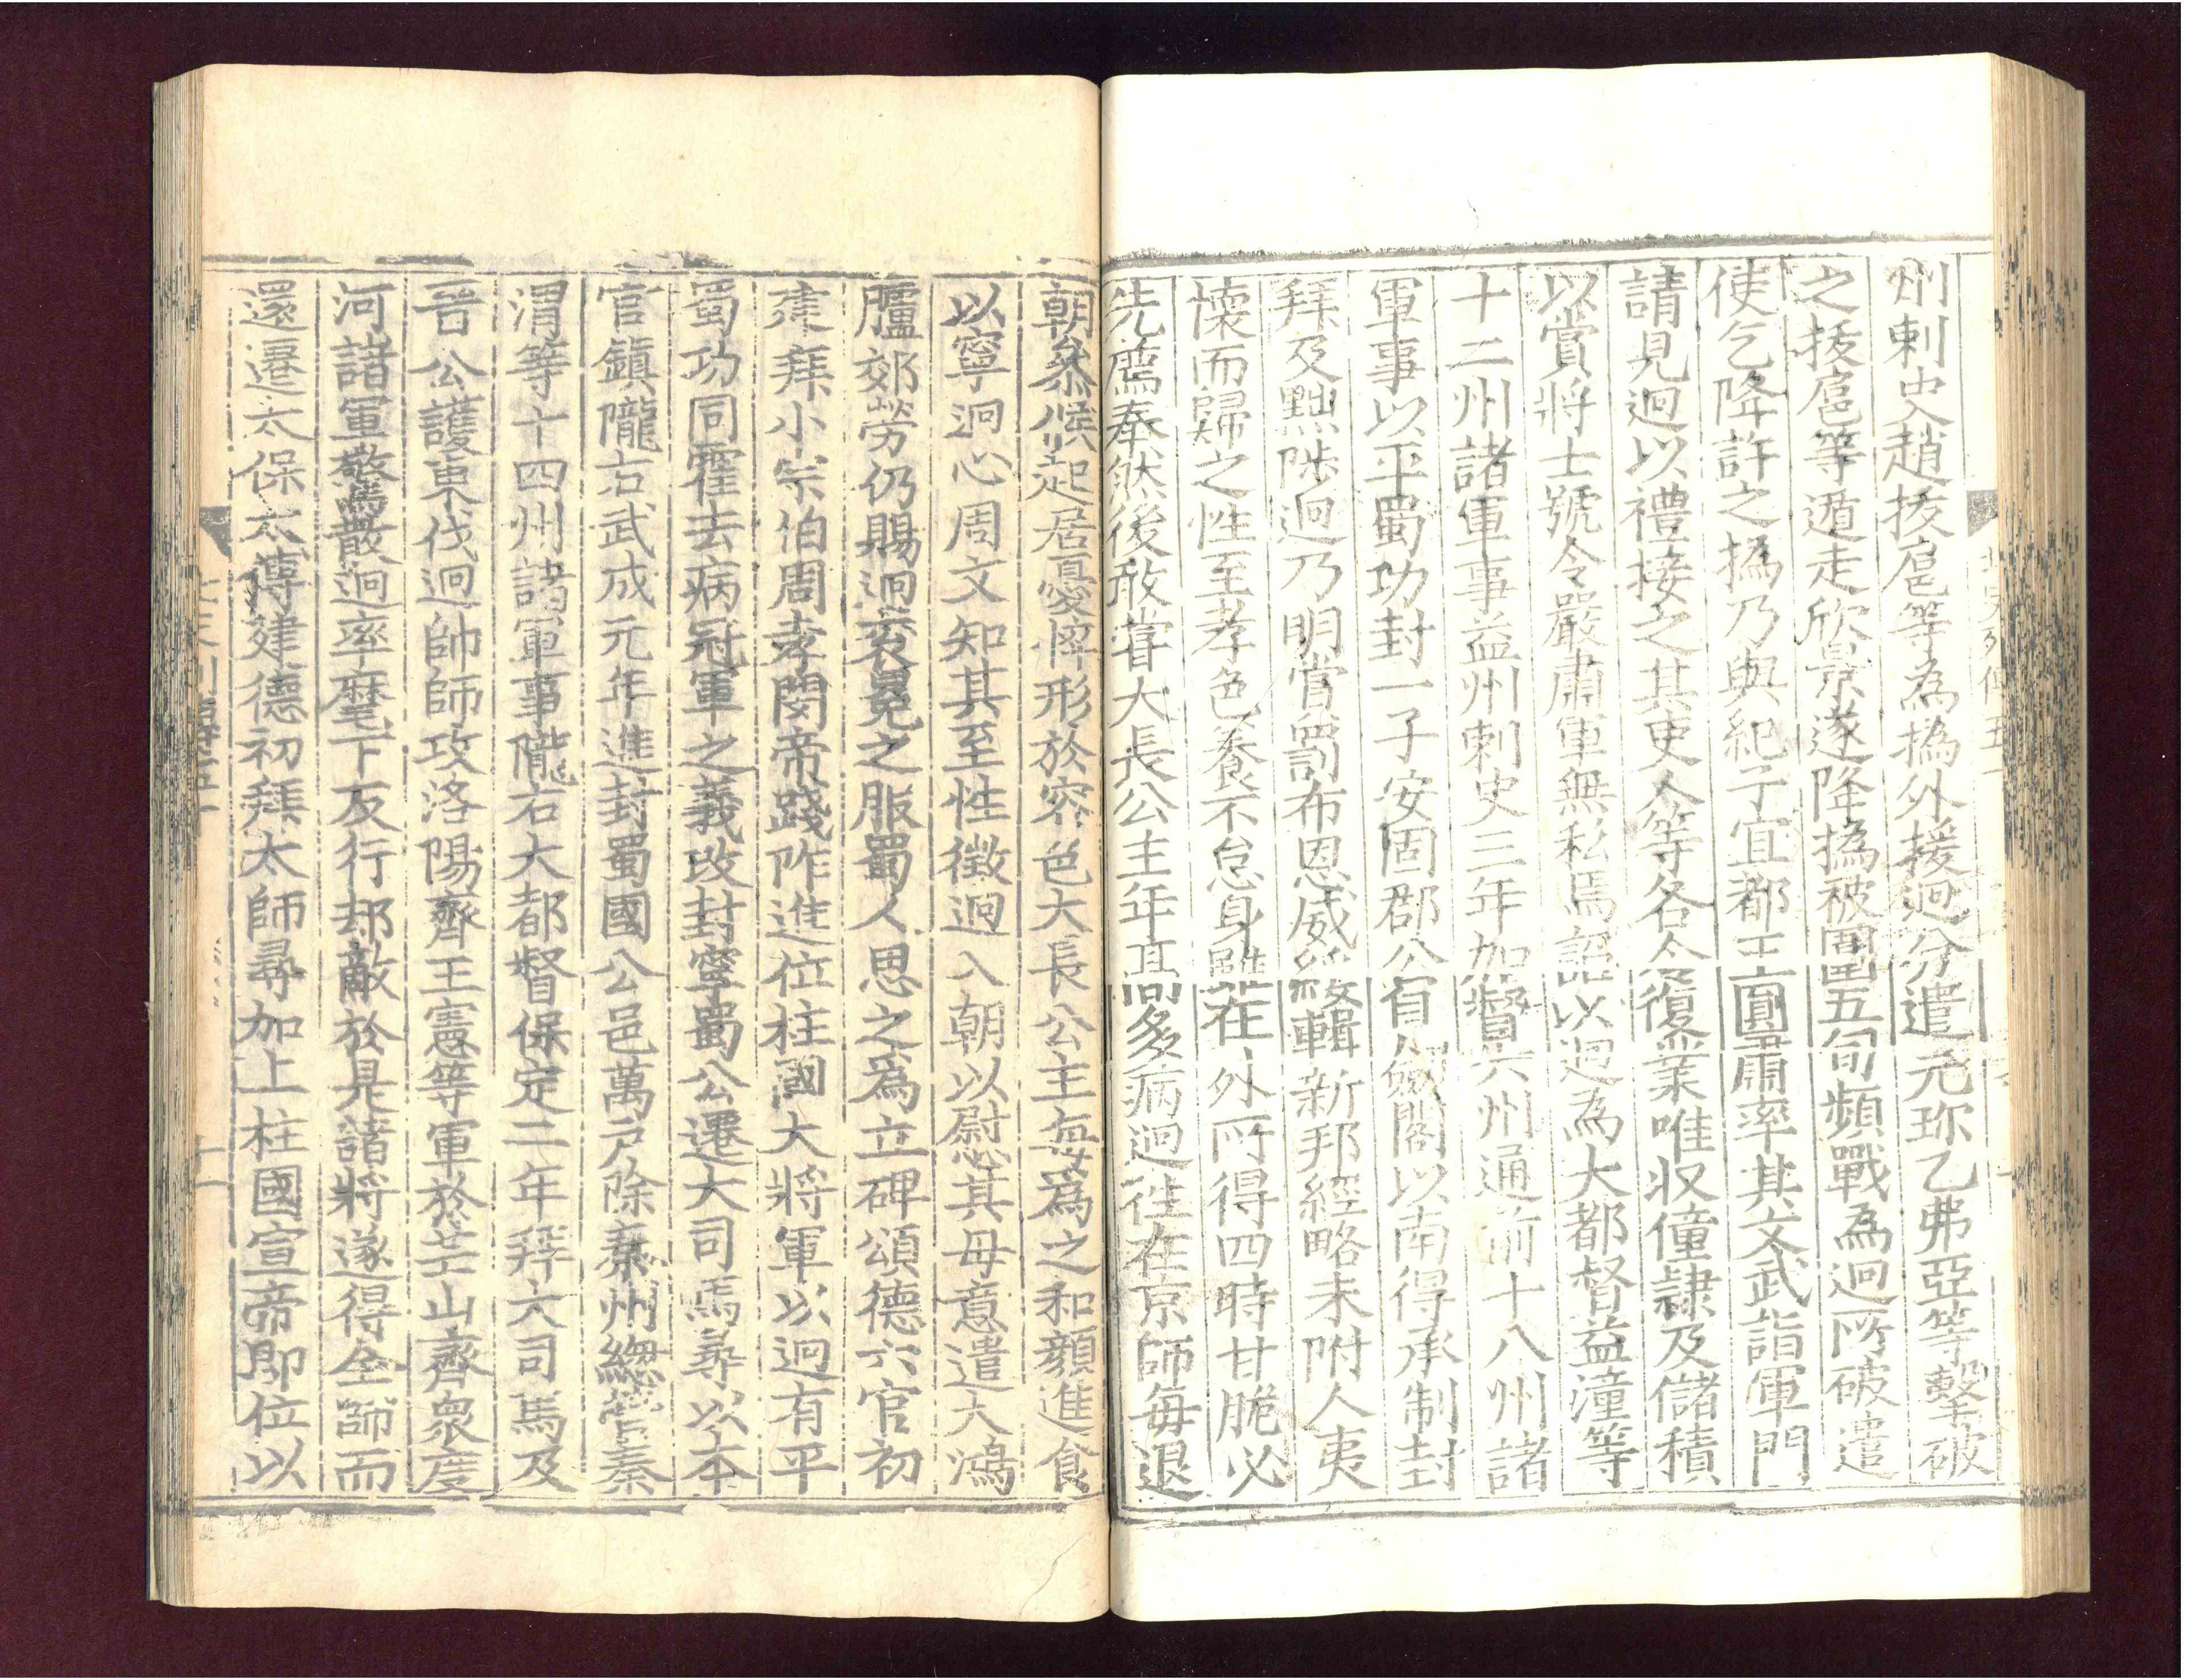 州刺史趙拔扈等為撝外援迥分遣元珎乙弗亞等擊破
之拔扈等遁走欣景遂降撝被圍五旬頻戰為迥所破遣
使乞降許之撝乃與紀子宜都王圓肅率其文武詣軍門
請見迥以禮接之其吏人等各令復業唯収僮隷及儲積
以賞將士號令嚴肅軍無私焉詔以迥為大都督益潼等
十二州諸軍事益州刺史三年加督六州通前十八州諸
軍事以平蜀功封一子安固郡公自劒閣以南得承制封
拜及黜陟迥乃明賞罰布恩威綏輯新邦經略未附人夷
懷而歸之性至孝色養不怠身雖在外所得四時甘脆必
先薦奉然後敢甞大長公主年高多病迥往在京師每退
朝叅候起居憂悴形於容色大長公主每爲之和顔進食
以寧迥心周文知其至性徵迥入朝以慰其母意遣大鴻
臚郊勞仍賜迥衮冕之服蜀人思之爲立碑頌德六官初
建拜小宗伯周孝閔帝踐阼進位柱國大將軍以迥有平
蜀功同霍去病冠軍之義改封寧蜀公遷大司馬尋以本
官鎮隴右武成元年進封蜀國公邑萬户除秦州緫管秦
渭等十四州諸軍事隴右大都督保定二年拜大司馬及
晉公護東伐迥帥師攻洛陽齊王憲等軍於芒山齊衆度
河諸軍驚散迥率麾下反行却敵於是諸將遂得全師而
還遷太保太傅建德初拜太師尋加上柱國宣帝即位以